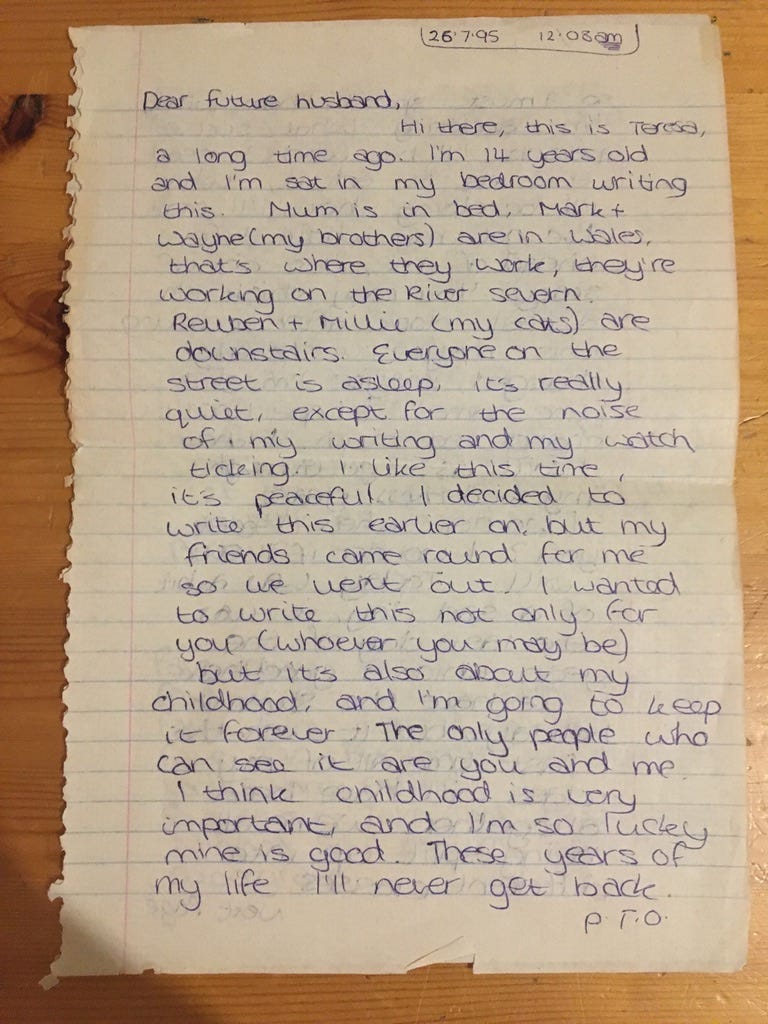 26.7.95 12.08am
Dear future husband,
Hi there, this is Teresa,
a long time ago. I'm 14 years old
and I'm sat in my bedroom writing
this. Mum is in bed, Mark +
Wayne (my brothers) are in Wales,
that's where they work, they're
working on the River severn.
Reuben + Millie (my cats) are
downstairs. Everyone on the
street is asleep, it's really
quiet, except for the noise
of my writing and my watch
ticking. I like this time,
it's peaceful. I decided to
write this earlier on, but my
friends came round for me
so we went out. I wanted
to write this not only for
you (whoever you may be)
but it's also about my
childhood, and I'm going to keep
it forever. The only people who
can see it are you and me.
I think childhood is very
important, and I'm so lucky
mine is good. These years of
my life I'll never get back.
P.T.O.